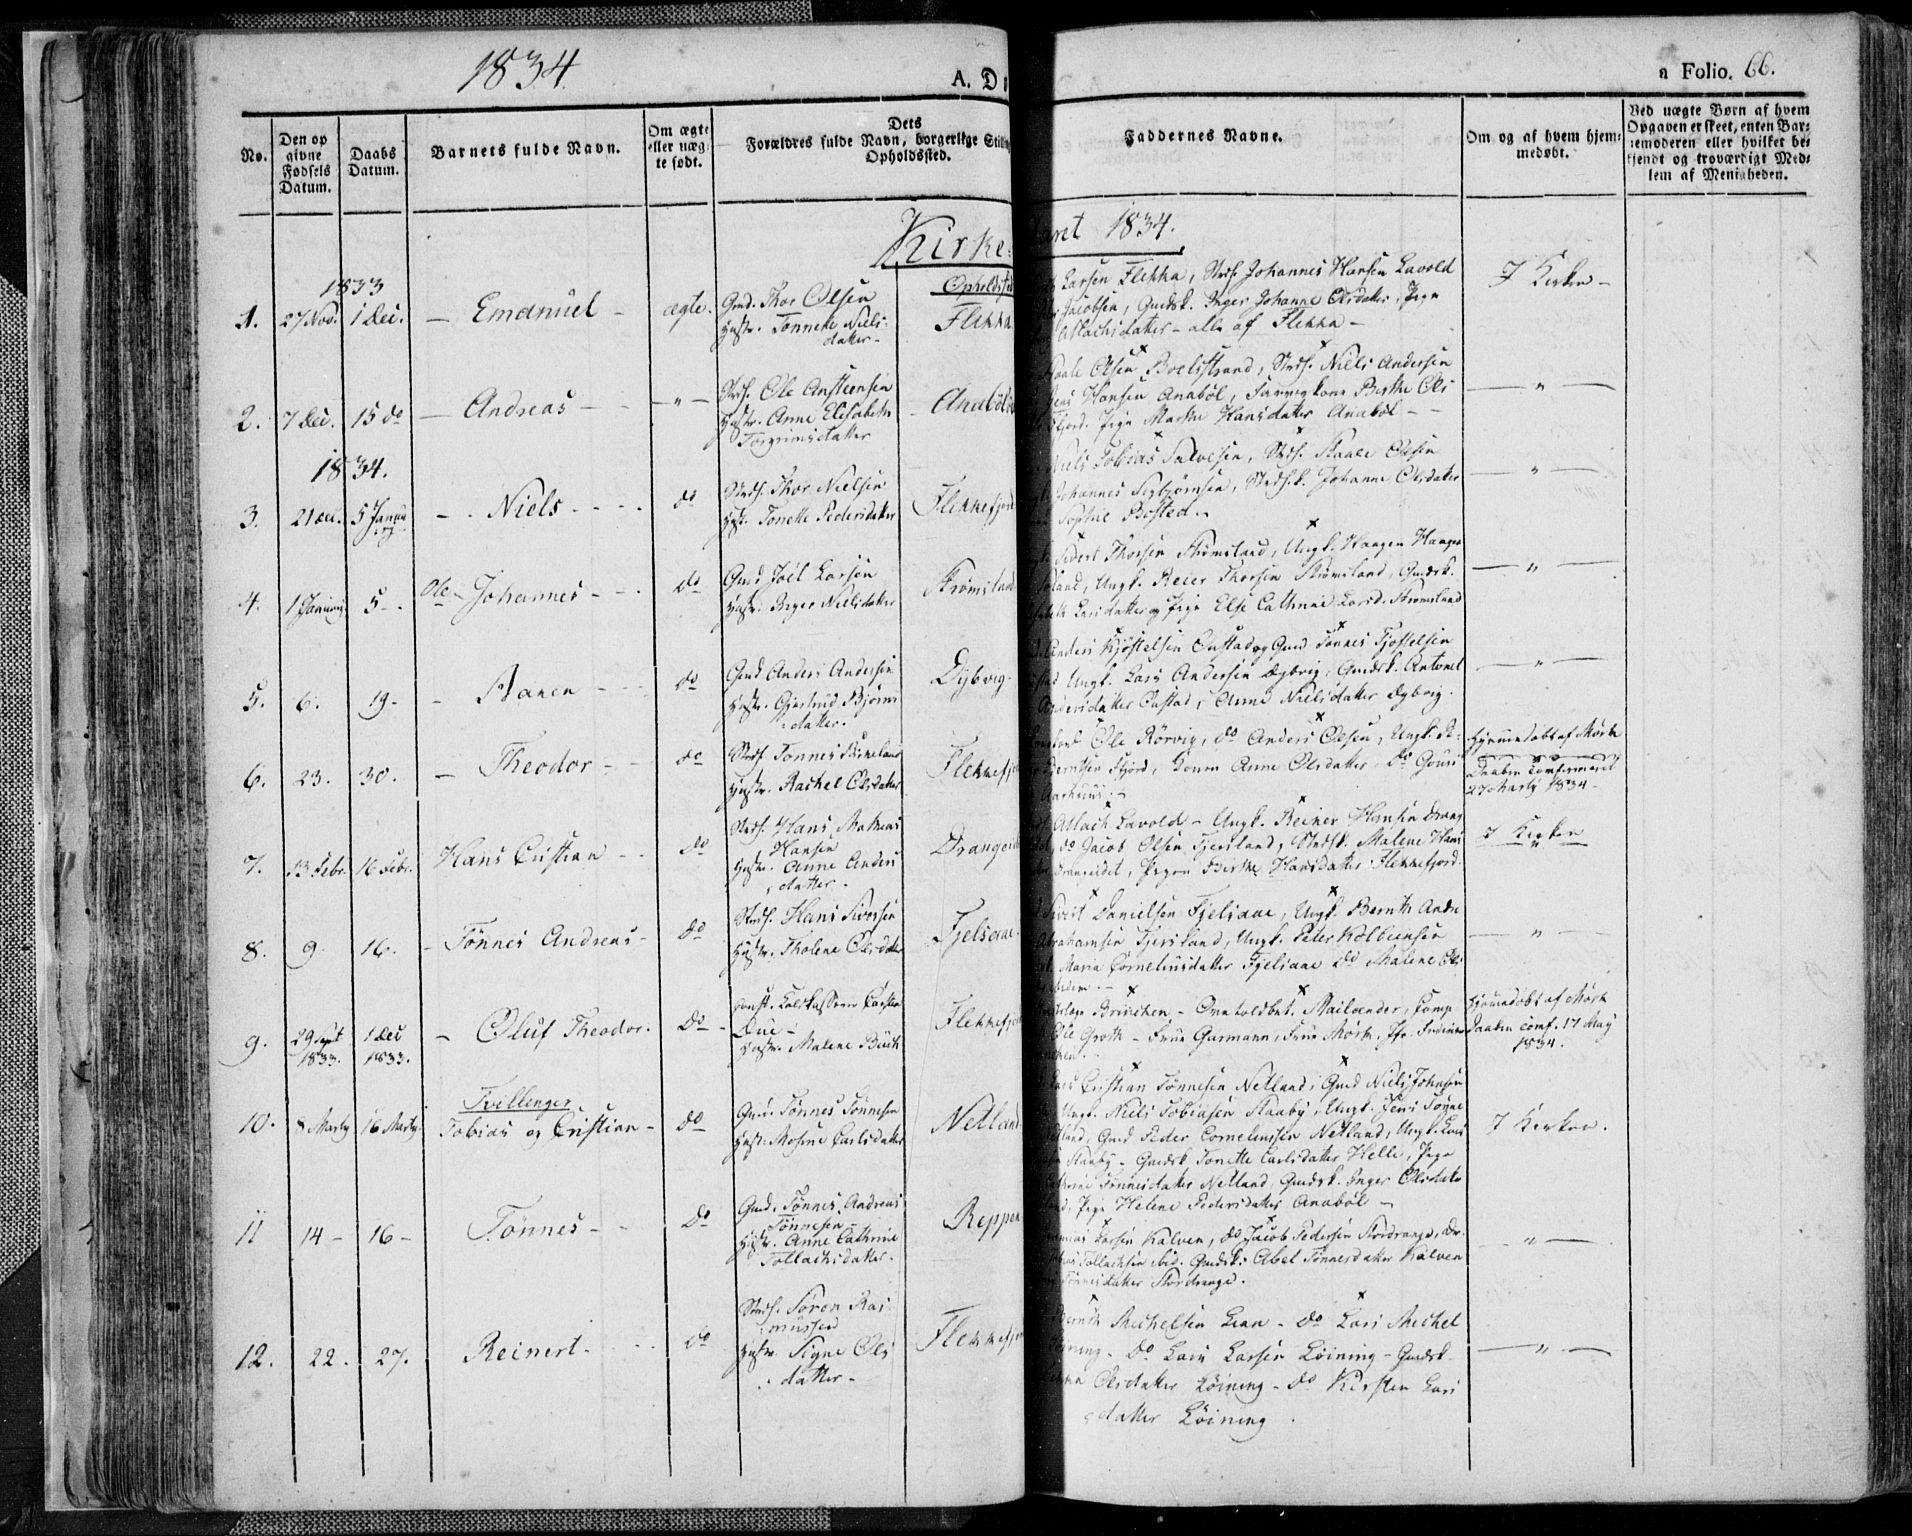 1834
A. D
a Folio. 66.
No.
Den op
givne
Fødsels
Datum.
Daabs
Datum.
Barnets fulde Navn.
Om ægte
eller uæg-
te født.
Dets
Forældres fulde Navn, borgerlige Stilling
Opholdssted.
Faddernes Navne.
Om og af hvem hjem-
medøbt.
Ved uægte Børn af hvem
Opgaven er skeet, enten Bar-
nemoderen eller hvilket be-
kjendt og troværdigt Med-
lem af Menigheden.
Kirke-
aaret 1834.
Opholdsted
1833
1. 27 Nov. 1 Dec. — Emanuel — ægte.
Gmd. Thor Olsen
Hustr. Tonnette Niels-
datter —
Flekka
Larsen Flekka, Strds. Johannes Hansen Lavold
Jacobsen, Gmdsk. Inger Johanne Olsdatter, Pige
Aslachsdatter — alle af Flekka —
I Kirken —
2. 7 Dec. 15 do — Andreas — — " —
Strds. Ole Ansteensen
Hustr. Anne Elisabeth
Torgrimsdatter
Anabøl
Staale Olsen Boelstrand, Strds. Niels Andersen
Hansen Anabøl, Farverkone Berthe Ols
Fjord. Pige Marthe Hansdatter Anabøl —
— " —
1834.
3. 21 Dec. 5 Januar — Niels — do
Strds. Thor Nielsen
Hustr. Tonette Pedersdatter
Flekkefjord
Niels Tobias Salvesen, Strds. Staale Olsen
Johannes Sigbjørnsen, Strdsk. Johanne Olsdatter
Sophie Bosted.
— " —
4. 1 Januar 5 — Ole Johannes — do
Gmd Joël Larsen
Hustr. Berger Nielsdatter
Strømsland
Peder Thorsen Strømsland, Ungk. Haagen Haagen
Ungk. Reier Thorsen Strømsland, Gmdsk.
Larsdatter og Pige Else Cathrine Larsd. Strømsland
— " —
5. 6. 19 — Aanen — do
Gmd Anders Andersen
Hustr. Gjertrud Bjørns
datter.
Dybvig
Anders Kjøstelsen Oustad og Gmd Tønnes Kjøstelsen
Ungk. Lars Andersen Dybvig, Gmdsk. Antonet
Andersdatter Oustad, Anne Nielsdatter Dybvig.
— " —
6. 23. 30. — Theodor — do
Strds Tonnes
Hustr. Rachel Olsdatter
Flekkefjord
Ole Rørvig, do Anders Olsen, Ungk. Pe-
Berntsen Fjord, Konen Anne Olsdatter, do
Aarhuus.
Hjemmedøbt af Mørk
Daaben confirmeret
27 Marty 1834 —
7. 13 Febr. 16 Febr. Hans Cristian — do
Strds. Hans Mathias
Hansen
Hustr. Anne Anders
datter —
Drangeid
Atlach Lavold — Ungk. Reiner Hansen Drang
do Jacob Olsen Fjersland, Strdsk. Malene Hans
Drangeidet, Pigen Berthe Hansdatter Flekkefjord
I Kirken
8. 9. 16. — Tønnes Andreas — do
Strds. Hans Sivertsen
Hustr. Tholene Olsdatter
Fjelsaae
Sivert Danielsen Fjelsaae, Ungk. Bernth Andr
Abrahamsen Fjersland, Ungk. Peter Kolbeensen
Maria Corneliusdatter Fjelsaae do Malene Ols
— " —
9. 29 Sept 1833. 1 Dec 1833. — Oluf Theodor. do —
Const. Toldkasserer Carsten
Due —
Hustr. Malene Buch
Flekkefjord
Mailænder, Comp
Ole Groth — Frue Garmann, Frue Mørk, Jfr.
Hjemmedøbt af Mørk
Daaben comf. 17 May
1834.
Tvillenger
10. 8 Marty 16 Marty. Tobias og Cristian — do
Gmd. Tønnes Tønnesen
Hustr. Mosine Carlsdatter
Netland
Lars Cristian Tønnesen Netland, Gmd Niels Johnsen
Ungk. Niels Tobiasen Staaby, Ungk. Jens Tønne
Netland, Gmd Peder Corneliussen Netland, Ungk. Lars
Staaby — Gmdsk. Tonette Carlsdatter Helle, Pige
Cathrine Tønnesdatter Netland, Gmdsk. Inger Olsdatter
Pige Helene Pedersdatter Anabøl —
I Kirken.
11 14 — 16 — Tønnes — do
Gmd. Tønnes Andreas
Tønnesen
Hustr. Anne Cathrine
Tollachsdatter.
Reppen
Larsen Kalven, do Jacob Pedersen Stordrange, do.
Tollachsen ibid. Gmdsk. Abel Tønnesdatter Kalven
Tønnesdatter Stordrange.
— " —
12. 22. 27. Reinert. do
Strds. Søren Ras
mussen
Hustr. Signe Ols
datter —
Flekkefjord
Bernth Michelsen Lian — do Lars Michel
Løining — do Lars Larsen Løining — Gmdsk.
Olsdatter Løining — do Kirsten Lars
datter Løining.
— " —